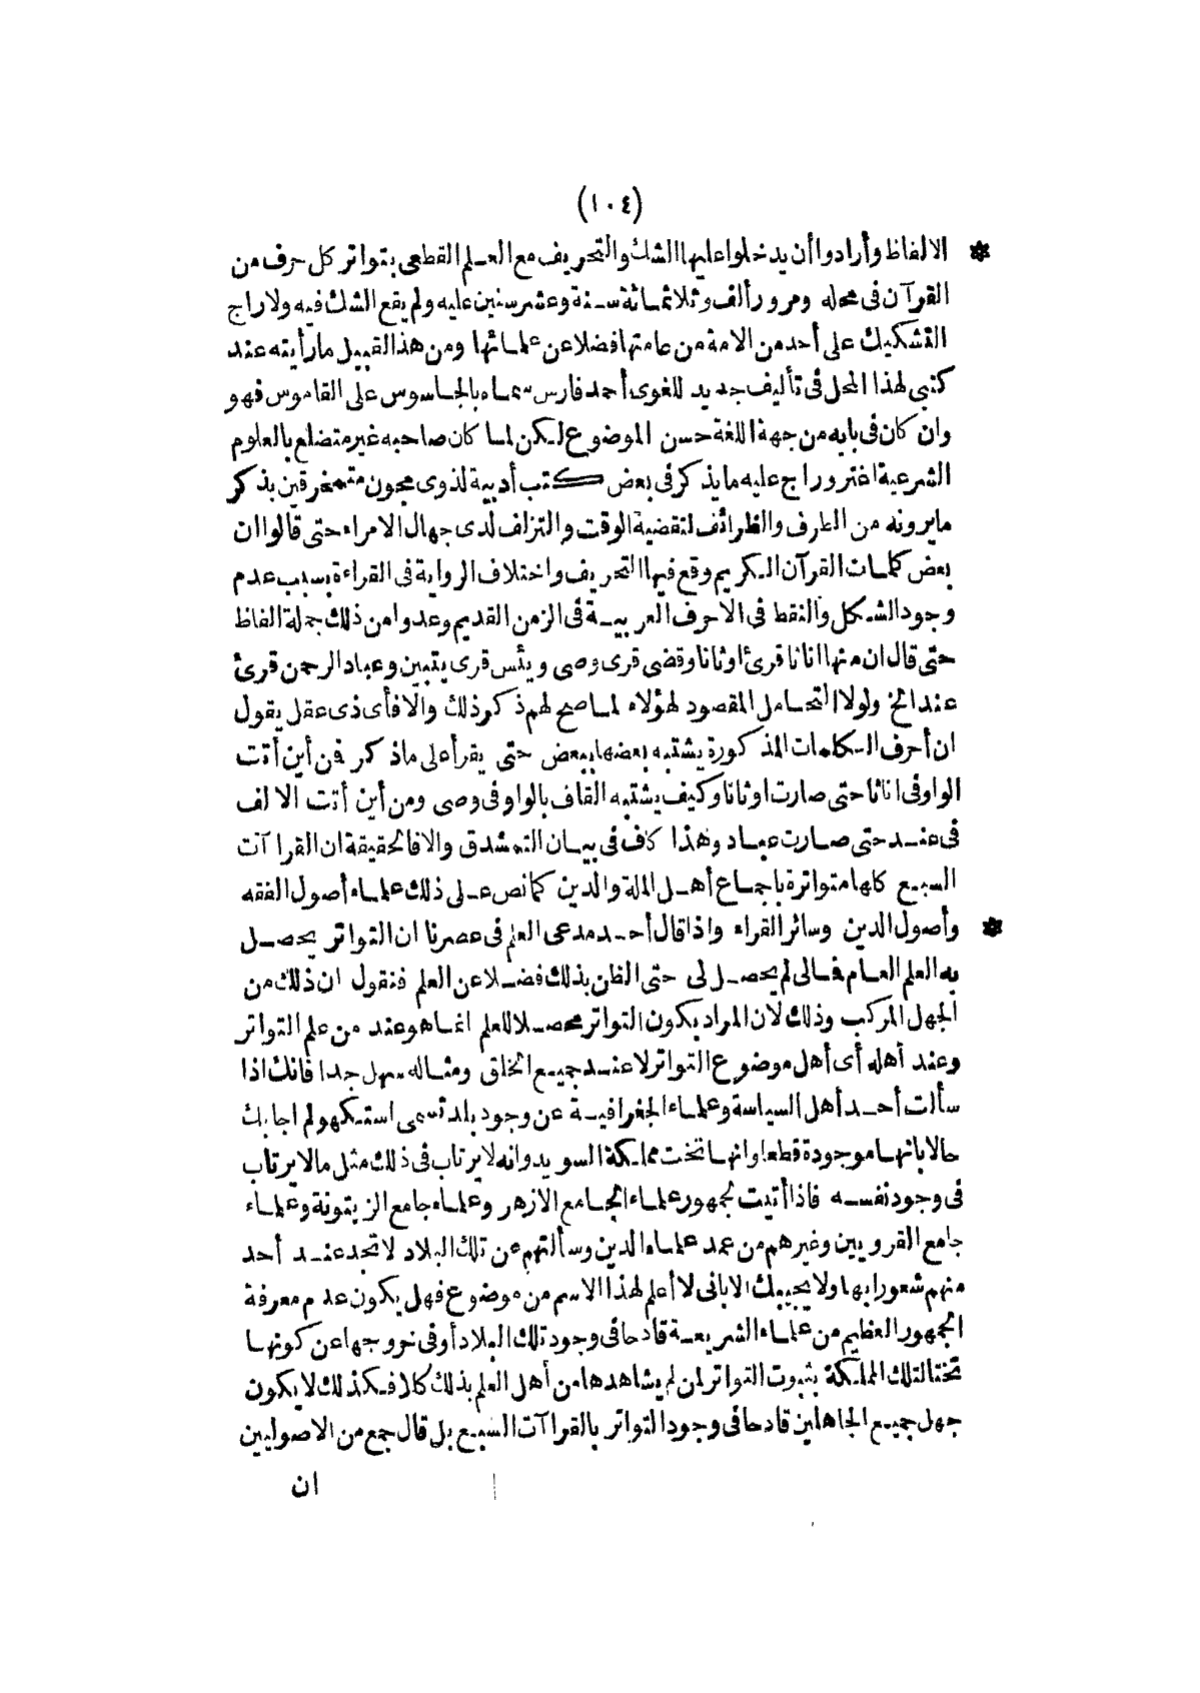 (١٠٤)
* الالفاظ وأرادوا أن يدخلوا عليها الشك والتحريف مع العلم القطعى بتواتر كل حرف من
القرآن فى محله ومرور ألف وثلاثمائة سنة وعشر سنين عليه ولم يقع الشك فيه ولا راج
التشكيك على أحد من الامة من عامتها فضلا عن علمائها ومن هذا القبيل ما رأيته عند
كتبى لهذا المحل فى تأليف جديد للغوى أحمد فارس سماه بالجاسوس على القاموس فهو
وان كان فى بابه من جهة اللغة حسن الموضوع لكن لما كان صاحبه غير متضلع بالعلوم
الشرعية اغتر وراج عليه ما يذكر فى بعض كتب أدبية لذوى مجون متمخرقين بذكر
ما يرونه من الطرف والظرائف لتقضية الوقت والتزلف لدى جهال الامراء حتى قالوا ان
بعض كلمات القرآن الكريم وقع فيها التحريف واختلاف الرواية فى القراءة بسبب عدم
وجود الشكل والنقط فى الاحرف العربية فى الزمن القديم وعدوا من ذلك جملة الفاظ
حتى قال ان منها اناثا قرئ اوثانا وقضى قرى وصى ويئس قرى يتبين وعباد الرحمن قرئ
عند الخ ولولا التحامل المقصود لهؤلاء لما صح لهم ذكر ذلك والا فأى ذى عقل يقول
ان أحرف الكلمات المذكورة يشتبه بعضها ببعض حتى يقرأ على ماذكر فمن أين أتت
الواو فى اناثا حتى صارت اوثانا وكيف يشتبه القاف بالواو فى وصى ومن أين أتت الالف
فى عند حتى صارت عباد وهذا كاف فى بيان التمشدق والا فالحقيقة ان القرا آت
السبع كلها متواترة باجماع أهل الملة والدين كما نص على ذلك علماء أصول الفقه
* وأصول الدين وسائر القراء واذا قال أحد مدعى العلم فى عصرنا ان التواتر يحصل
به العلم العام فمالى لم يحصل لى حتى الظن بذلك فضلا عن العلم فنقول ان ذلك من
الجهل المركب وذلك لان المراد بكون التواتر محصلا للعلم انما هو عند من علم التواتر
وعند أهله أى أهل موضوع التواتر لا عند جميع الخلق ومثاله سهل جدا فانك اذا
سألت أحد أهل السياسة وعلماء الجغرافية عن وجود بلد تسمى استكهولم اجابك
حالا بانها موجودة قطعا وانها تخت مملكة السويد وانه لا يرتاب فى ذلك مثل مالا يرتاب
فى وجود نفسه فاذا أتيت لجمهور علماء الجامع الازهر وعلماء جامع الزيتونة وعلماء
جامع القرويين وغيرهم من عمد علماء الدين وسألتهم عن تلك البلاد لا تجد عند أحد
منهم شعورا بها ولا يجيبك الا بانى لا أعلم لهذا الاسم من موضوع فهل يكون عدم معرفة
الجمهور العظيم من علماء الشريعة قادحا فى وجود تلك البلاد أو فى خروجها عن كونها
تختا لتلك المملكة بثبوت التواتر لمن لم يشاهدها من أهل العلم بذلك كلا فكذلك لا يكون
جهل جميع الجاهلين قادحا فى وجود التواتر بالقرا آت السبع بل قال جمع من الاصوليين
ان